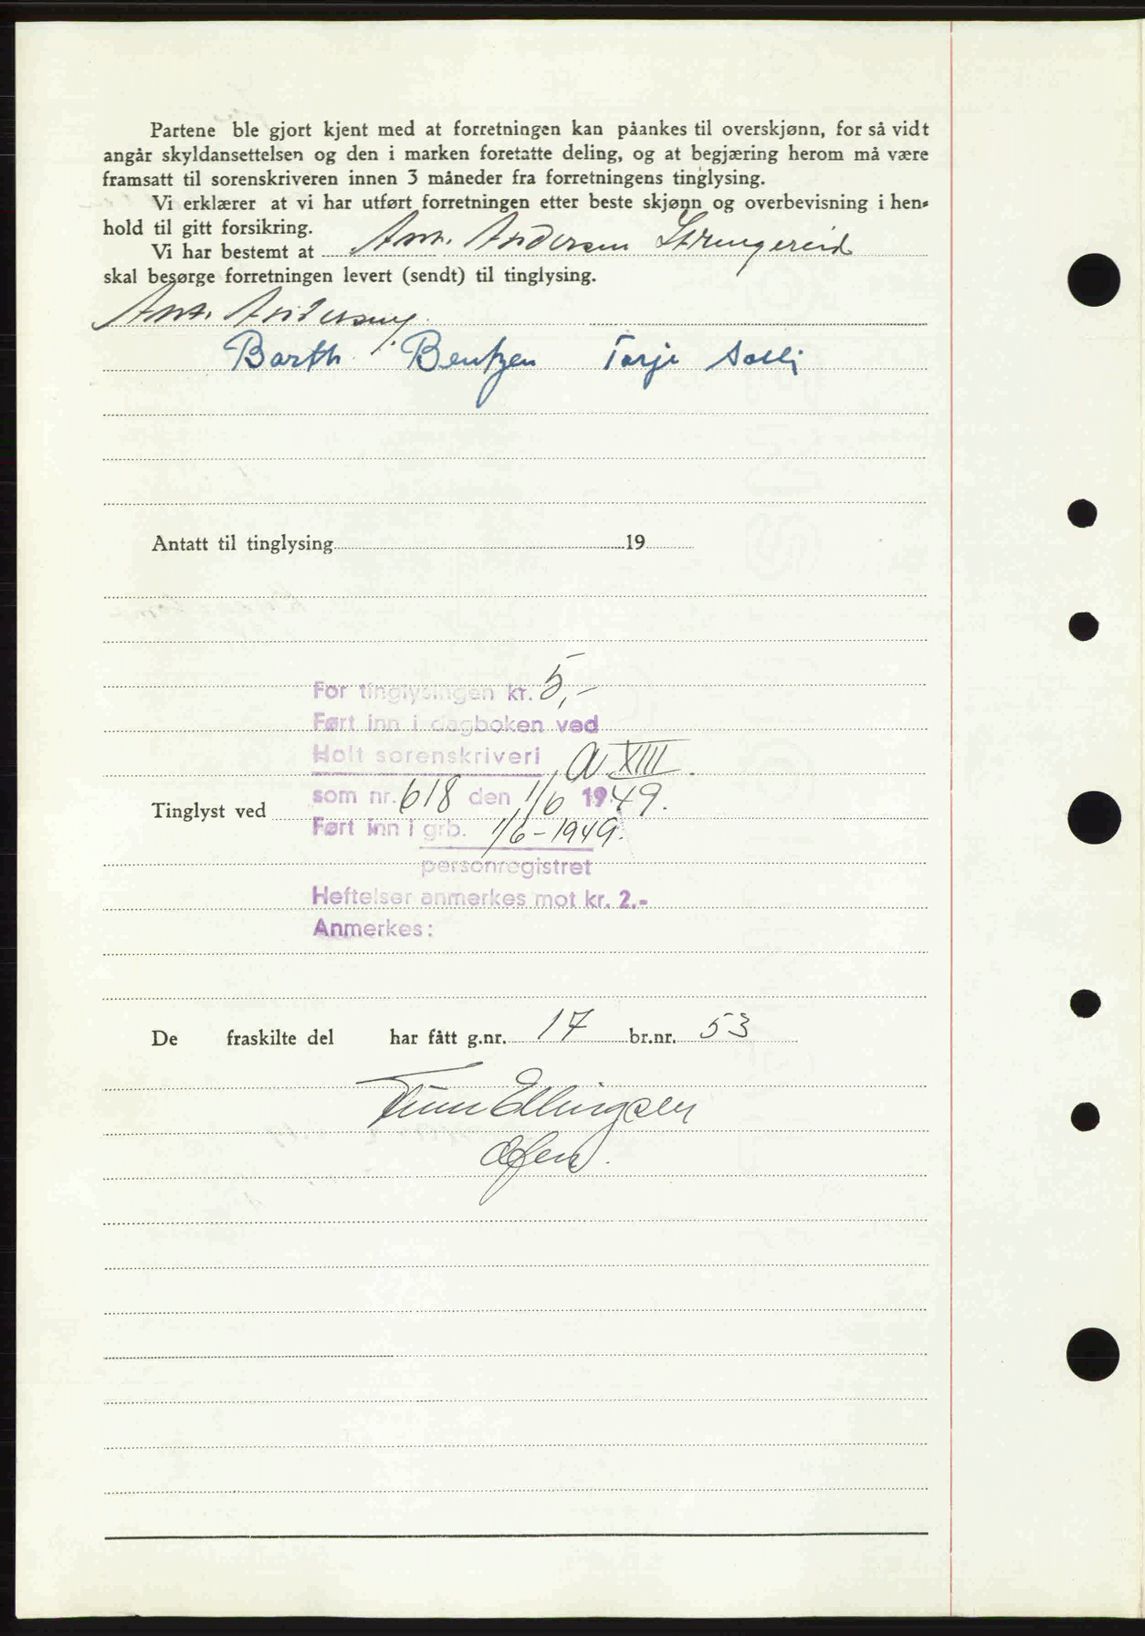 Partene ble gjort kjent med at forretningen kan påankes til overskjønn, for så vidt
angår skyldansettelsen og den i marken foretatte deling, og at begjæring herom må være
framsatt til sorenskriveren innen 3 måneder fra forretningens tinglysing.
Vi erklærer at vi har utført forretningen etter beste skjønn og overbevisning i hen-
hold til gitt forsikring.
Vi har bestemt at Ant. Andersen Strengereid
skal besørge forretningen levert (sendt) til tinglysing.
Ant. Andersen
Barth Bentzen Tarje Solli
Antatt til tinglysing 19
For tinglysingen kr. 5,-
Ført inn i dagboken ved
Holt sorenskriveri, A XIII.
som nr. 618 den 1/6 1949.
Tinglyst ved
Ført inn i grb. 1/6-1949.
personregistret
Heftelser anmerkes mot kr. 2.-
Anmerkes:
De fraskilte del har fått g.nr. 17 br.nr. 53
Ellingsen